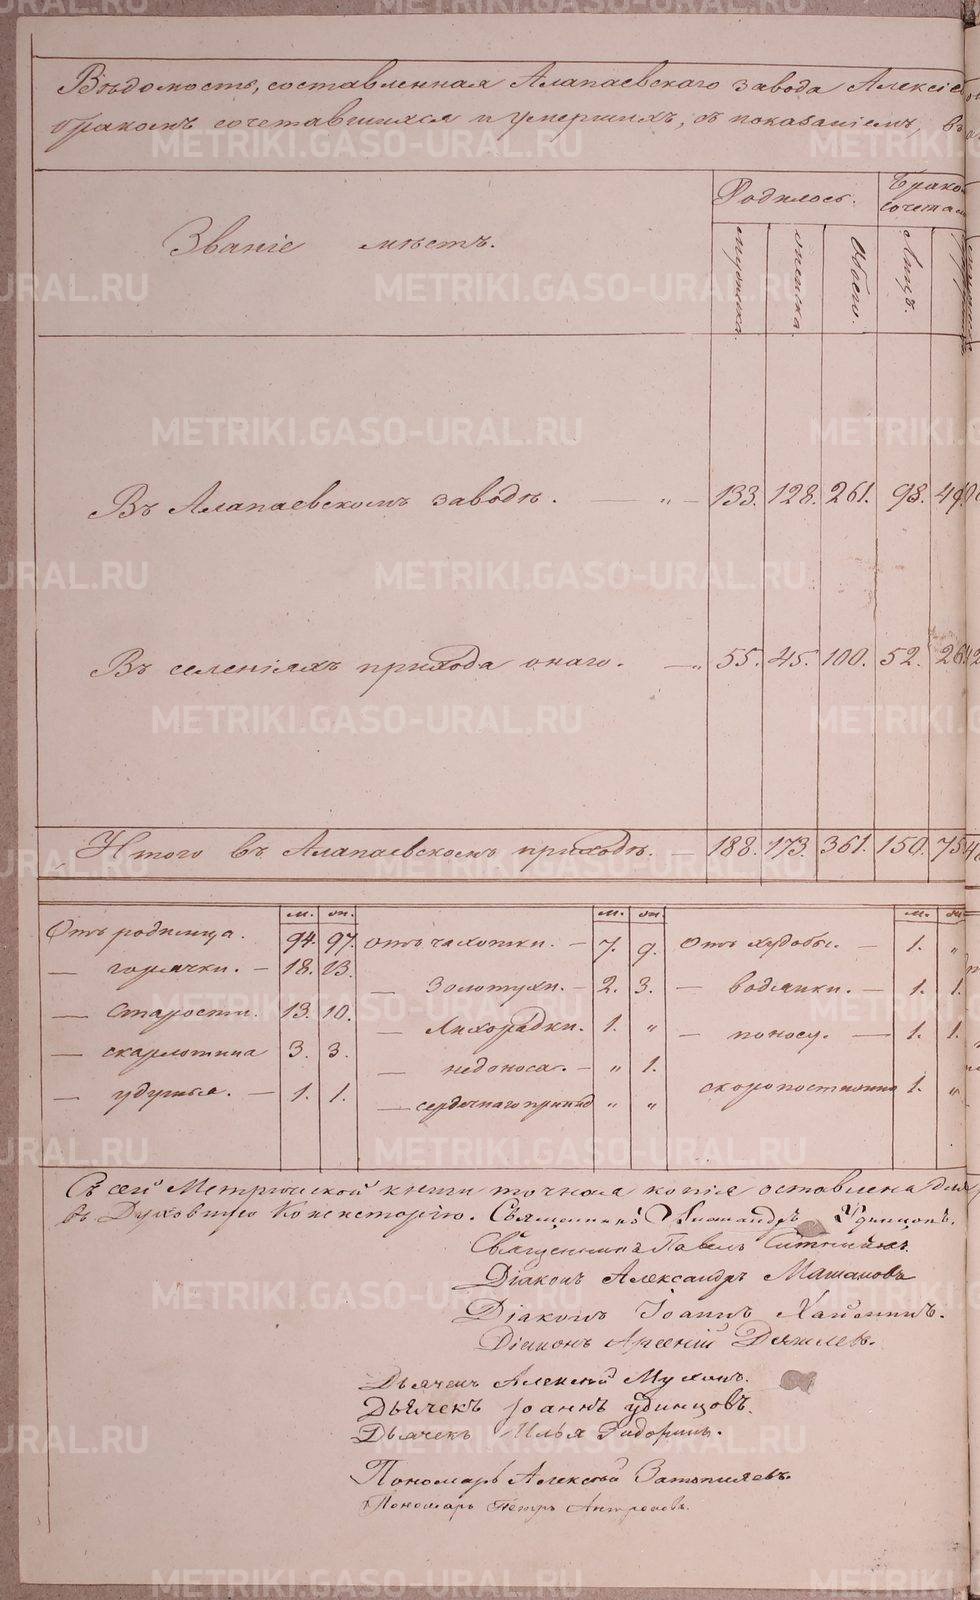 Вѣдомость, составленная Алапаевскаго завода Алексіе
бракомъ сочетавшихся и умершихъ, съ показаніемъ, въ
Званіе мѣстъ.
Родилось.
Брако
сочета
мужска.
женска.
Обоего.
Лицъ.
Въ Алапаевскомъ заводѣ. — „ — 133. 128. 261. 98. 49.
Въ селеніяхъ прихода онаго. — „ 55. 45. 100. 52. 26.
Итого въ Алапаевскомъ приходѣ. — 188. 173. 361. 150. 75
м. ж. м. ж. м. ж.
Отъ родимца. 94. 97. отъ чахотки. — 7. 9. Отъ худобы. — 1. „
— горячки. — 18. 13. — Золотухи. — 2. 3. — водянки. — 1. 1.
— Старости. 13. 10. — Лихорадки. 1. „ — поносу. — 1. 1.
— скарлотина 3. 3. — недоноса. — „ 1. скоропостижно 1. „
— удушья. — 1. 1. — сердечнаго припад „ „
Съ сей Метрической книги точная копія оставлена для
въ Духовную Консисторію. Священникъ Александръ Удинцовъ.
Священникъ Павелъ Ситниковъ
Діаконъ Александръ Машановъ
Діаконъ Іоаннъ
Діаконъ Арсеній Дягилевъ.
Дьячекъ Алексѣй Мухинъ.
Дьячекъ Іоаннъ Удинцовъ.
Дьячекъ Илья Сидоринъ.
Пономарь Алексѣй
Пономарь Петръ Антроповъ.
METRIKI.GASO-URAL.RU